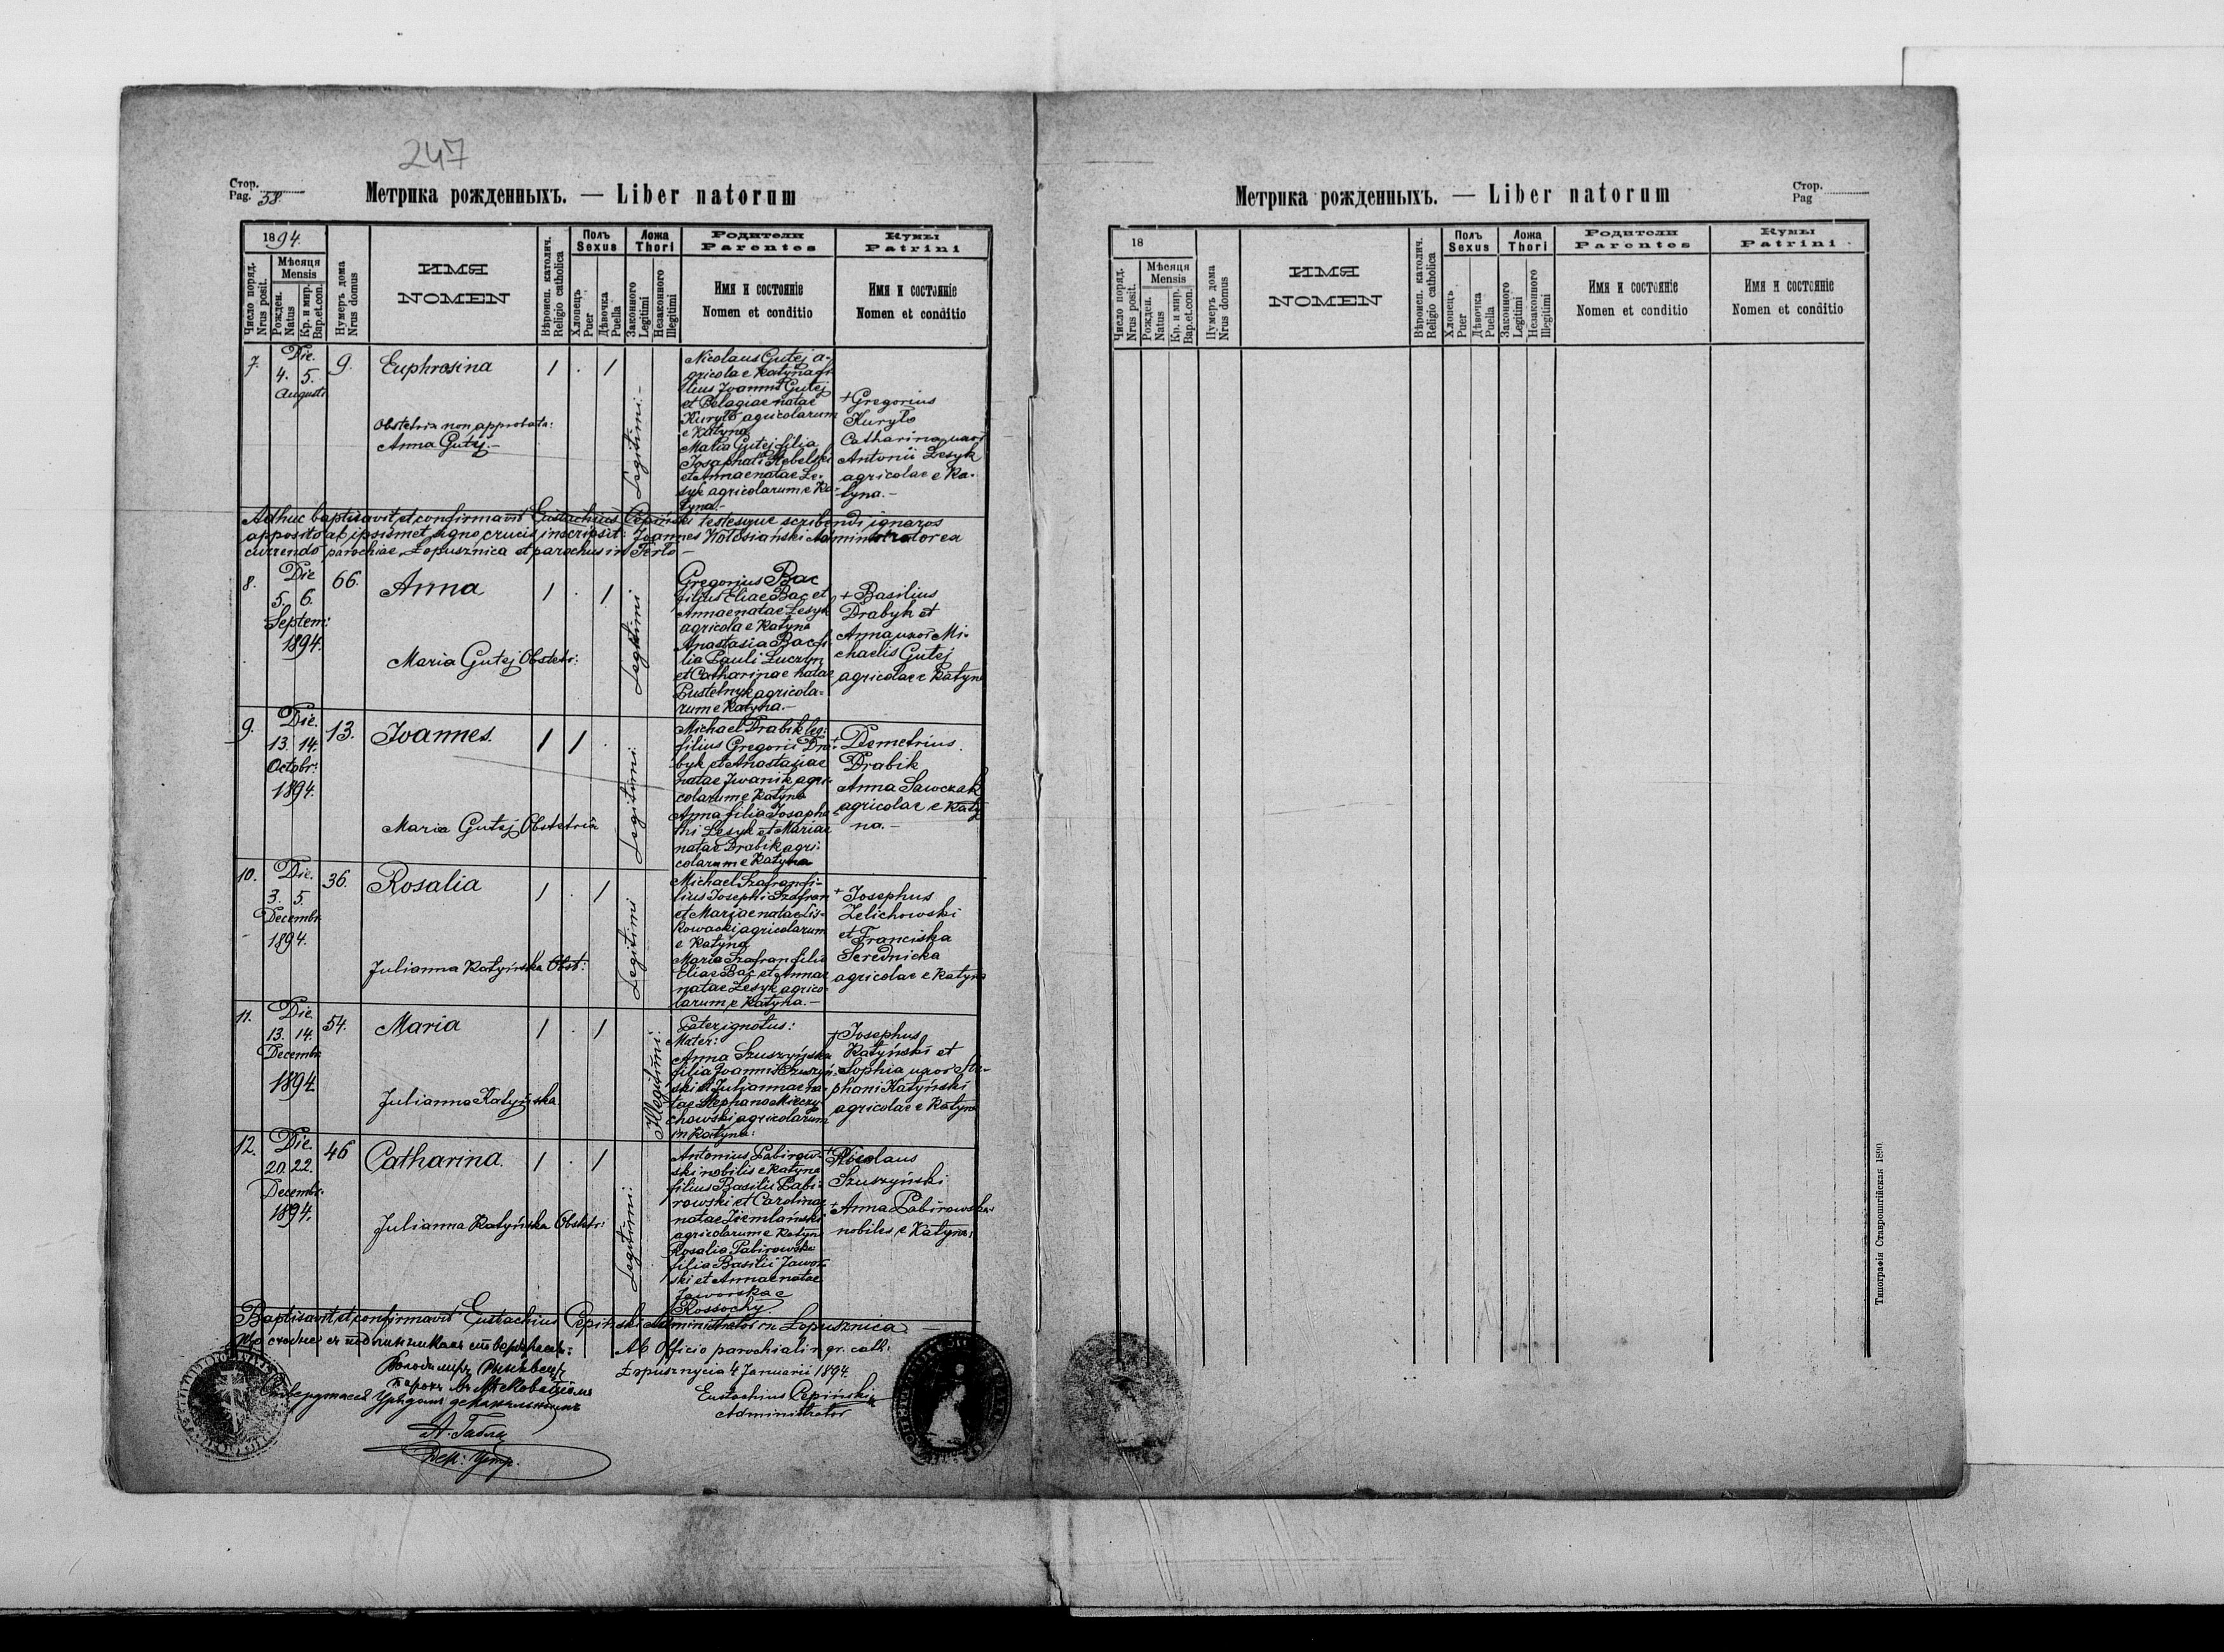 247
Стор.
Pag. 58.
Метрика рожденныхъ. — Liber natorum
1894.
Число поряд.
Nrus posit.
Мѣсяця
Mensis
Рожден.
Natus
Кр. и мир.
Bap.et.con.
Нумеръ дома
Nrus domus
ИМЯ
NOMEN
Вѣроисп. католич.
Religio catholica
Полъ
Sexus
Хлопецъ
Puer
Дѣвочка
Puella
Ложа
Thori
Законного
Legitimi
Незаконного
Illegitimi
Родители
Parentes
Имя и состояніе
Nomen et conditio
Кумы
Patrini
Имя и состояніе
Nomen et conditio
7. Die 4. 5. Augusti 9. Euphrosina 1 . 1
Obstetrix non approbata:
Anna Gutej.—
Legitimi.—
Nicolaus Gutej a-
gricola e Katyna fi-
lius Joannis Gutej
et Pelagiae natae
Kuryło agricolarum
e Katyna
Maria Gutej filia
Josaphati Hebelski
et Annae natae Le-
syk agricolarum e Ka-
tyna.—
+ Gregorius
Kuryło
Catharina uxor
Antonii Lesyk
agricolae e Ka-
tyna.—
Adhuc baptisavit, et confirmavit Eustachius Cepiński testesque scribendi ignaros
apposito ab ipsismet signo crucis inscripsit: Joannes Kołosiański Administrator ex
currendo parochiae Łopusznica et parochus in Terło —
8. Die 5. 6. Septem: 1894. 66. Anna 1 . 1
Maria Gutej Obstetr:
Legitimi
Gregorius Bac
filius Eliae Bac et
Annae natae Lesyk
agricola e Katyna
Anastasia Bac fi-
lia Pauli Luczyn
et Catharinae natae
Pustelnyk agricola-
rum e Katyna.—
+ Basilius
Drabyk et
Anna uxor Mi-
chaelis Gutej
agricolae e Katyn
9. Die. 13. 14. Octobr: 1894. 13. Joannes. 1 1 .
Maria Gutej Obstetrix
Legitimi.
Michael Drabik leg:
filius Gregorii Dra-
byk et Anastasiae
natae Iwanik agri-
colarum e Katyna
Anna filia Josapha-
thi Lesyk et Mariae
natae Drabik agri-
colarum e Katyna
+ Demetrius
Drabik
Anna Sawczak
agricolae e Katy-
na.—
10. Die. 3. 5. Decembr. 1894. 36. Rosalia 1 . 1
Julianna Katyńska Obst:
Legitimi
Michael Szafran fi-
lius Josephi Szafran
et Mariae natae Lis-
kowacki agricolarum
e Katyna
Maria Szafran filia
Eliae Bac et Annae
natae Lesyk agrico-
larum e Katyna.—
+ Josephus
Zelichowski
et Franciska
Serednicka
agricolae e Katyna
11. Die 13. 14. Decembr. 1894 54. Maria 1 . 1
Julianna Katyńska.
Illegitimi:
Pater ignotus:
Mater:
Anna Szuszyńska
filia Joannis Szuszyń-
ski et Juliannae na-
tae Stephano Mieczy-
chowski agricolarum
in Katyna:
+ Josephus
Katyński et
Sophia uxor Ste-
phani Katyński
agricolae e Katyna
12. Die. 20. 22. Decembr. 1894. 46 Catharina. 1 . 1
Julianna Katyńska Obstetr:
Legitimi:
Antonius Pabirow-
ski nobilis e Katyna
filius Basilii Pabi-
rowski et Carolinae
natae Ziemlański
agricolarum e Katyna
Rosalia Pabirowska
filia Basilii Jawor-
ski et Annae natae
Jaworska e
Rossochy.
+ Nicolaus
Szuszyński
+ Anna Pabirowska
nobiles e Katyna:
Baptisavit, et confirmavit Eustachius Cepiński Administrator in Łopusznica. —
Ab Officio parochiali r. gr. cath:
Łopusznycia 4 Januarii 1894.
Eustachius Cepiński
Administrator
Стор.
Pag
Метрика рожденныхъ. — Liber natorum
18
Число поряд.
Nrus posit.
Мѣсяця
Mensis
Рожден.
Natus
Кр. и мир.
Bap.et.con.
Нумеръ дома
Nrus domus
ИМЯ
NOMEN
Вѣроисп. католич.
Religio catholica
Полъ
Sexus
Хлопецъ
Puer
Дѣвочка
Puella
Ложа
Thori
Законного
Legitimi
Незаконного
Illegitimi
Родители
Parentes
Имя и состояніе
Nomen et conditio
Кумы
Patrini
Имя и состояніе
Nomen et conditio
Типографія Ставропигійская 1890